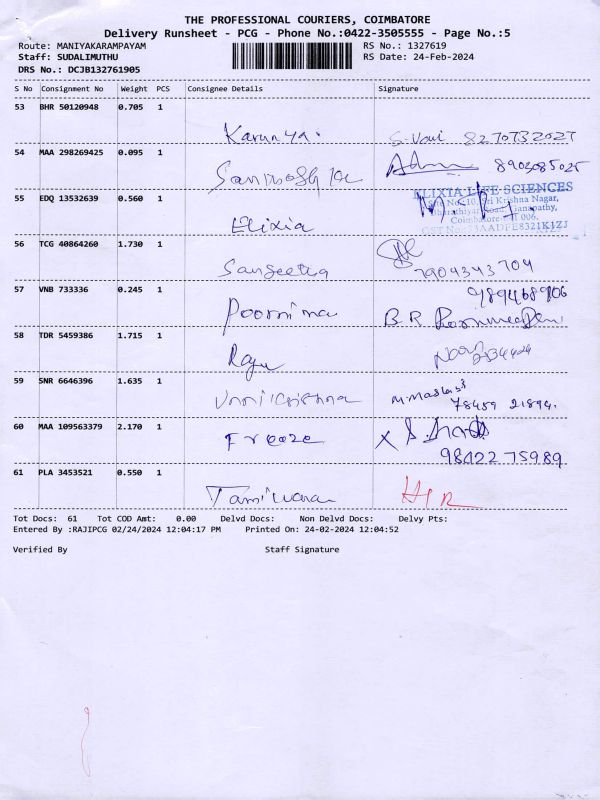 THE PROFESSIONAL COURIERS, COIMBATORE
Delivery Runsheet - PCG - Phone No.:0422-3505555 - Page No.:5
Route: MANIYAKARAMPAYAM RS No.: 1327619
Staff: SUDALIMUTHU RS Date: 24-Feb-2024
DRS No.: DCJB132761905
S No Consignment No Weight PCS Consignee Details Signature
53 BHR 50120948 0.705 1
Karunya.
54 MAA 298269425 0.095 1
8903085025
55 EDQ 13532639 0.560 1
ELIXIA LIFE SCIENCES
Site No: 10, Sri Krishna Nagar,
Bharathiyar Road, Ganapathy,
Coimbatore-641 006.
Elixia
56 TCG 40864260 1.730 1
Sangeetha 7904343704
57 VNB 733336 0.245 1
Poornima B R
58 TDR 5459386 1.715 1
Raju
59 SNR 6646396 1.635 1
Unnikrishna
78459 21894.
60 MAA 109563379 2.170 1
Freeze
98422 75989
61 PLA 3453521 0.550 1
Tot Docs: 61 Tot COD Amt: 0.00 Delvd Docs: Non Delvd Docs: Delvy Pts:
Entered By :RAJIPCG 02/24/2024 12:04:17 PM Printed On: 24-02-2024 12:04:52
Verified By Staff Signature